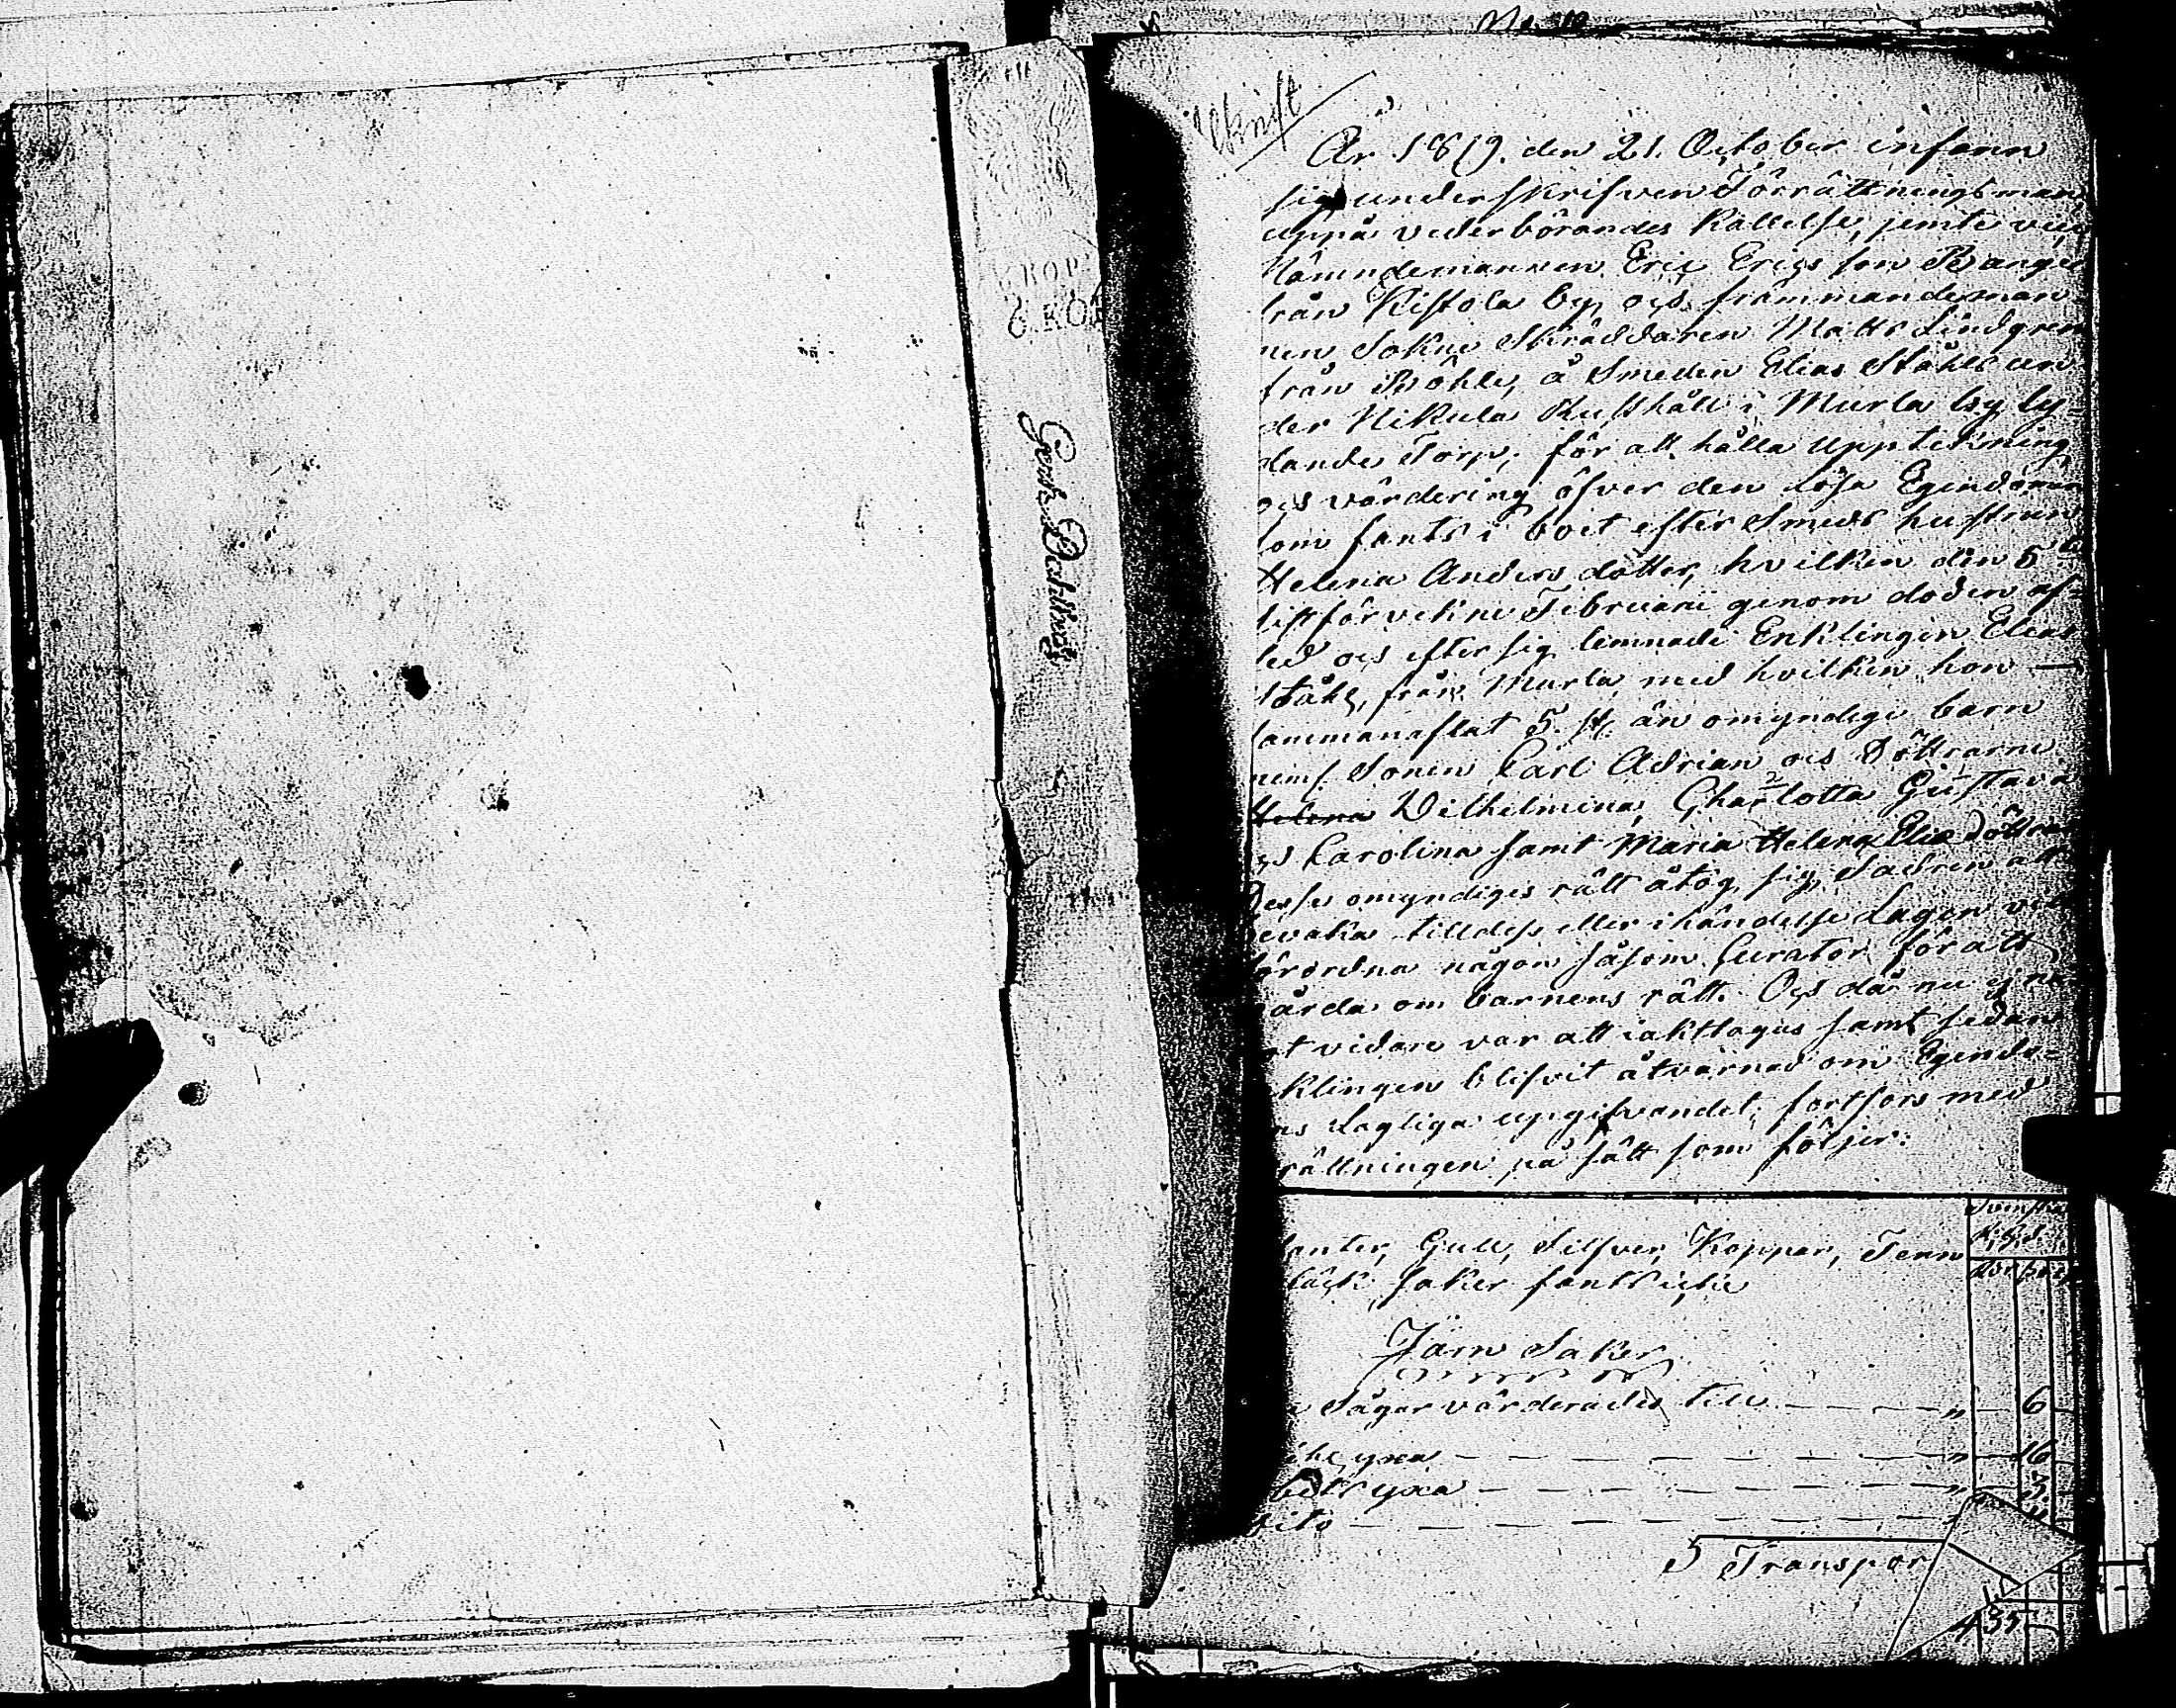 Afskrift
År 1819. den 21. October infann
sig underskrifven Förrättningsman
uppå vederbörandes Kallelse, jemte
Nämndemannen Eric Ericsson Range
från Kistola by, och främmande man
nen Sokne Skräddaren Matts Lindgren
från Böhle, å Smeden Elias Ståhls un
der Nikula Rusthåll i Murla by ly=
dande Torp, för att hålla uppteckning
och värdering öfver den lösa Egendomen
som fants i boet efter Smeds hustrun
Helena Anders dotter, hvilken den 5te
sistförvekne Februarii genom döden af=
led och efter sig lemnade Enklingen Elias
Ståhl, från Murla, med hvilken hon —
sammanaflat 5. st. än omyndige barn
neml. Sonen Carl Adrian och Döttrarne
Helena Wilhelmina, Charlotta Gustava
och Carolina samt Maria Helena Eliæ Döttrar
Desse omyndiges rätt åtog sig Fadren att
bevaka tilldess eller i händelse Lagen
förordna någon såsom Curator för att
vårda om barnens rätt. Och då nu ej
got vidare var att iakttagas samt sedan
klingen blifvit åtvarnad om Egendo=
ns Lagliga upgifvandet, fortfors med
rättningen på sätt som följer:
Svenska
R. S. r.
anter, Gull, Silfver, Koppar, Tenn
läck saker fants icke
Järn Saker
Sågar värderades till — — — " 6
yxa — — — " 16
bets yxa — — — " 3
Dito — — —
Transpor
435
Gersh. Dahlberg